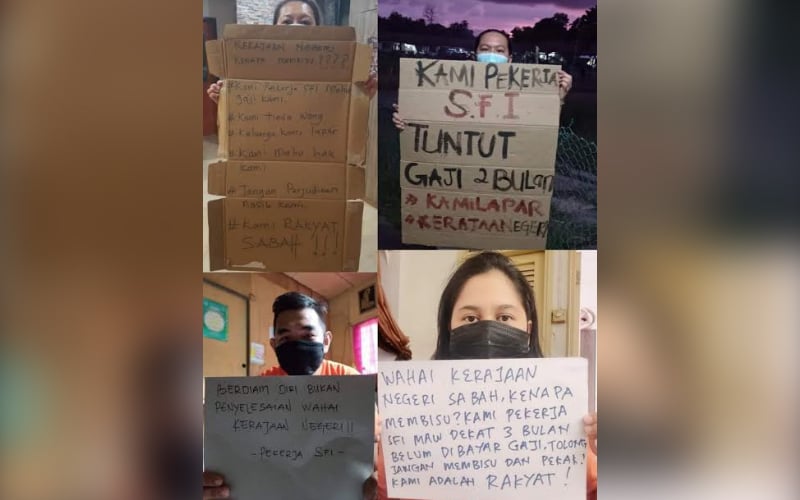 KERAJAAN NEGERI
KENAPA MEMBISU????
#Kami Pekerja SFI Mahu
gaji kami.
# Kami tiada wang
# Keluarga kami lapar
# Kami mahu hak
kami
# Jangan Perjudikan
nasib kami.
# Kami RAKYAT
SABAH !!!
KAMI PEKERJA
S.F.I
TUNTUT
GAJI 2 BULAN
# KAMILAPAR
#KERAJAANNEGERI
BERDIAM DIRI BUKAN
PENYELESAIAN WAHAI
KERAJAAN NEGERI!!!
- PEKERJA SFI -
WAHAI KERAJAAN
NEGERI SABAH, KENAPA
MEMBISU? KAMI PEKERJA
SFI MAU DEKAT 3 BULAN
BELUM DIBAYAR GAJI. TOLONG
JANGAN MEMBISU DAN PEKAK!
KAMI ADALAH RAKYAT!